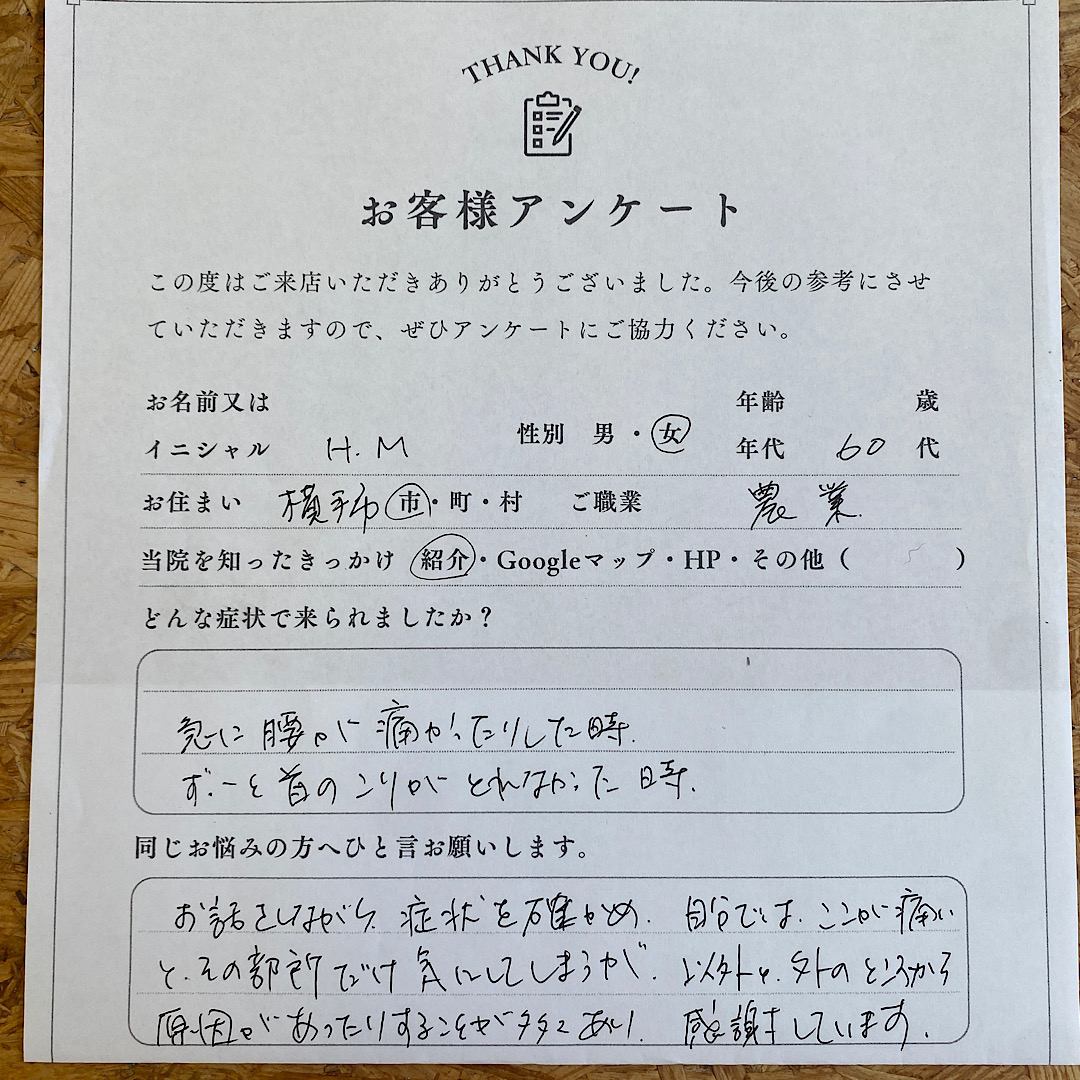 THANK YOU!
お客様アンケート
この度はご来店いただきありがとうございました。今後の参考にさせ
ていただきますので、ぜひアンケートにご協力ください。
お名前又は 年齢 歳
イニシャル H.M 性別 男・女 年代 60 代
お住まい 横手市 市・町・村 ご職業 農業
当院を知ったきっかけ 紹介・Googleマップ・HP・その他( )
どんな症状で来られましたか？
急に腰が痛かったりした時.
ずーと首のこりがとれなかった時.
同じお悩みの方へひと言お願いします。
お話をしながら、症状を確かめ、自分では、ここが痛い
と、その部所だけ気にしてしまうが、以外と、外のところから
原因があったりすることが多々あり、感謝をしています。